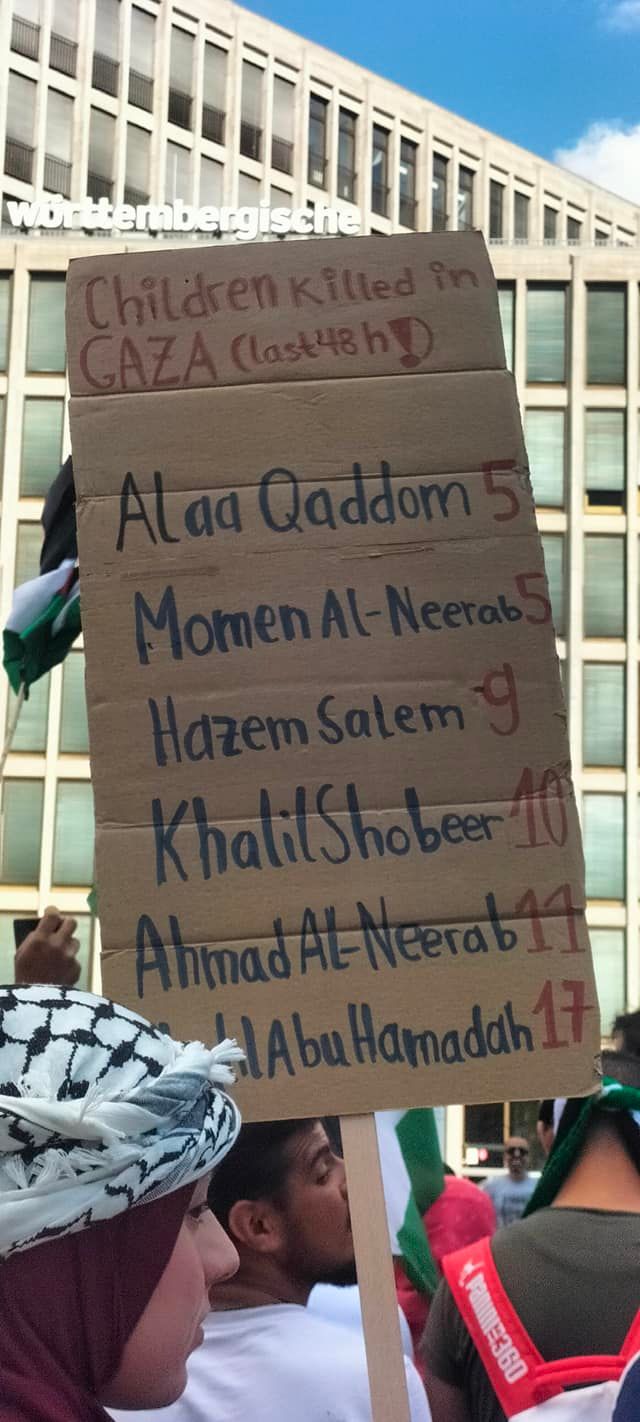 württembergische
Children Killed in
GAZA (last 48 h!)
Alaa Qaddom 5
Momen Al-Neerab 5
Hazem Salem 9
Khalil Shobeer 10
Ahmad AL-Neerab 11
Abu Hamadah 17